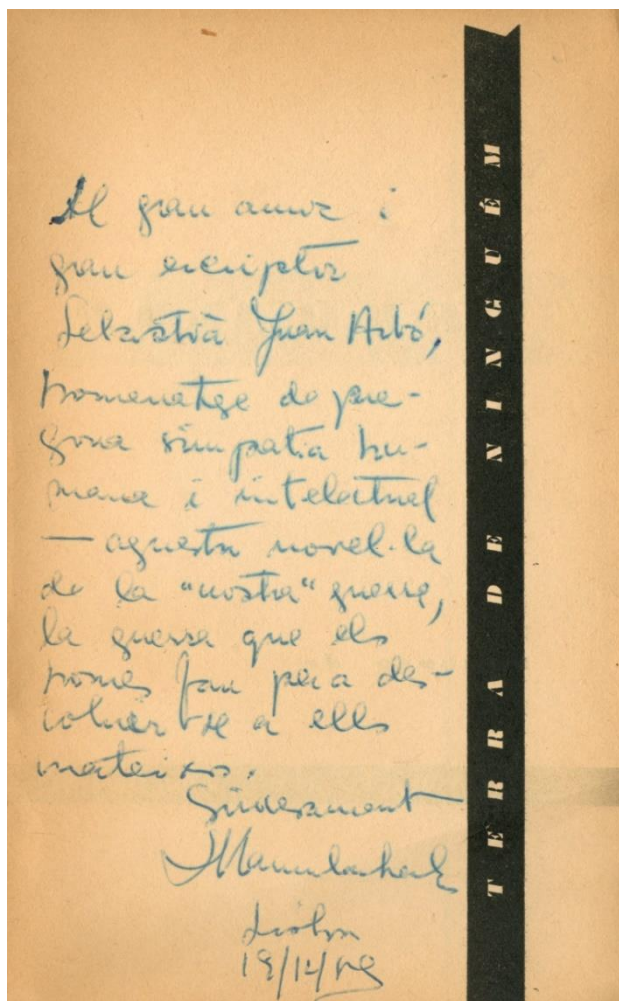 Al gran amic i
gran escriptor
Sebastià Juan Arbó,
homenatge de pre-
gona simpatia hu-
mana i intelectual
— aquesta novel·la
de la "nostra" guerra,
la guerra que els
homes fan per a des-
cobrir-se a ells
mateixos.
Sincerament
TERRA DE NINGUÉM